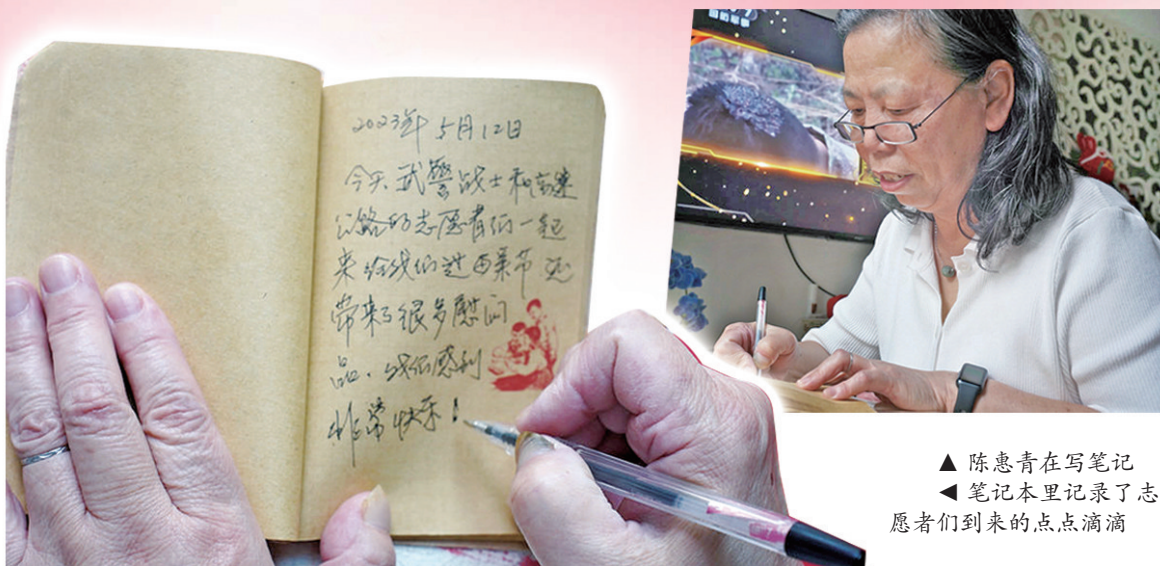 2023年 5月12日
今天 武警战士和高速
公路的志愿者们一起
来给我们过母亲节 还
带来了很多慰问
品，我们感到
非常快乐！
国防军事
▲ 陈惠青在写笔记
◀ 笔记本里记录了志
愿者们到来的点点滴滴